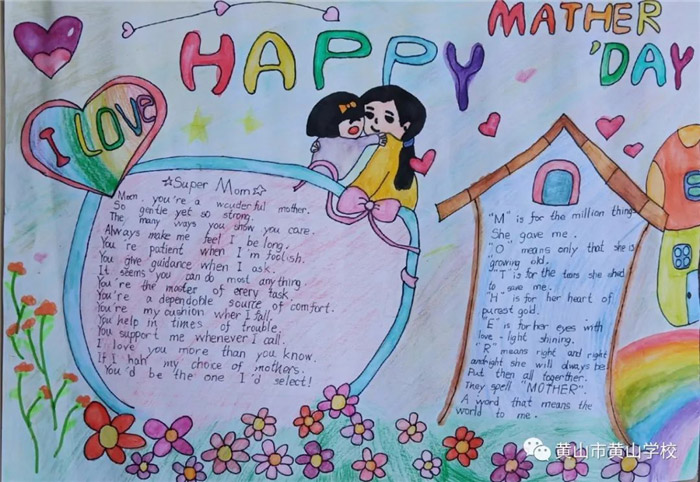 HAPPY
MATHER
'DAY
I LOVE
☆Super Mom☆
Mom, you're a wonderful mother.
So gentle yet so strong.
The many ways you show you care.
Always make me feel I be long.
You're patient when I'm foolish.
You give guidance when I ask.
It seems you can do most anything.
You're the master of every task.
You're a dependable source of comfort.
You're my cushion when I fall.
You help in times of trouble.
You support me whenever I call.
I love you more than you know.
If I hah my choice of mothers.
You'd be the one I'd select!
"M" is for the million things
She gave me.
"O" means only that she is
growing old.
"T" is for the tears she shed
to save me.
"H" is for her heart of
purest gold.
"E" is for her eyes with
love-light shining.
"R" means right and right
and right she will always be.
Put then all together.
They spell "MOTHER".
A word that means the
world to me.
黄山市黄山学校